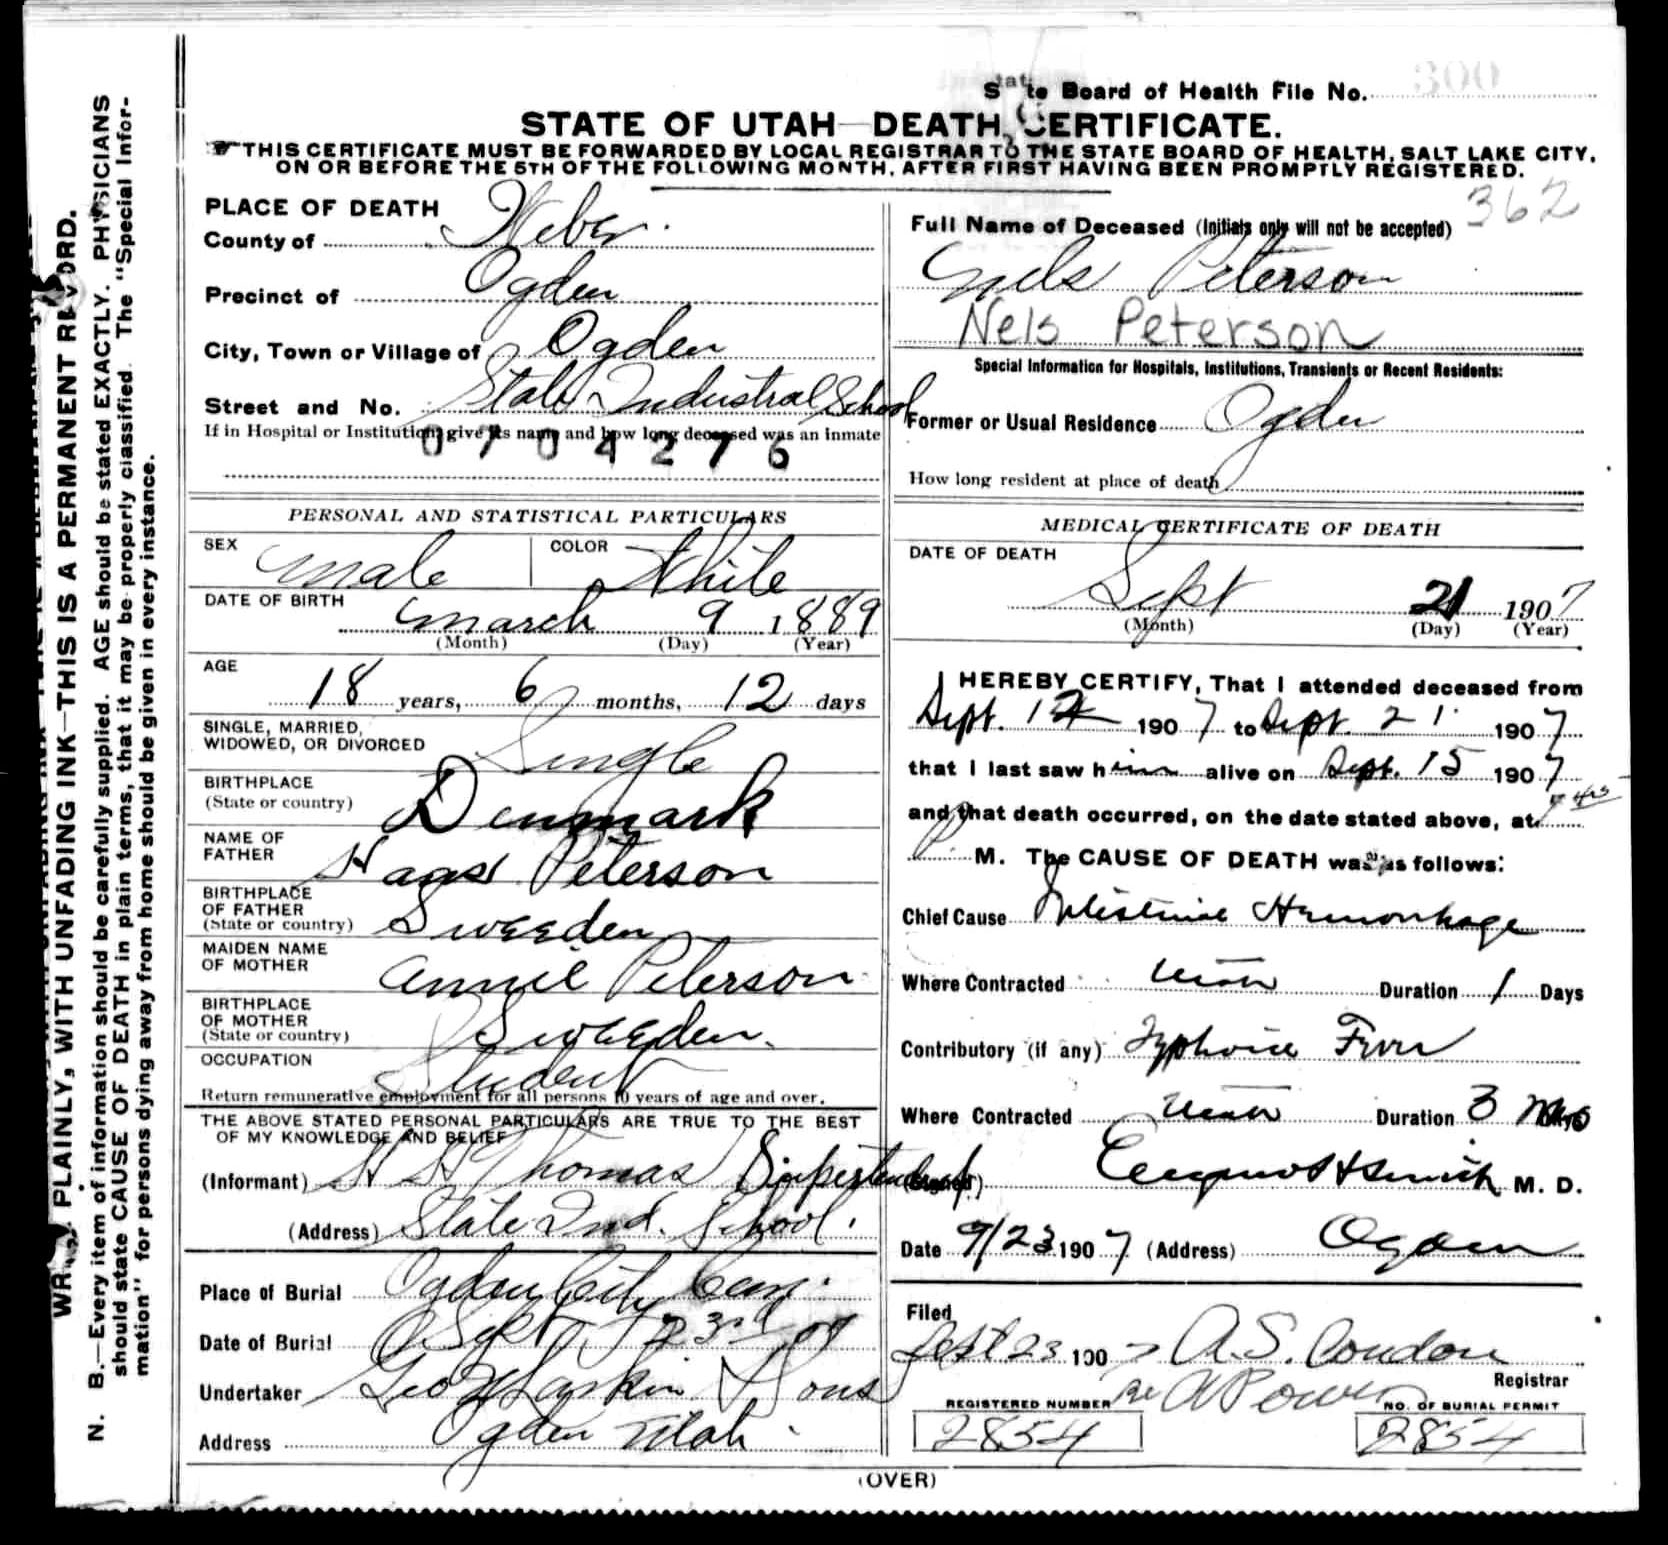 State Board of Health File No. 300
STATE OF UTAH—DEATH CERTIFICATE.
THIS CERTIFICATE MUST BE FORWARDED BY LOCAL REGISTRAR TO THE STATE BOARD OF HEALTH, SALT LAKE CITY,
ON OR BEFORE THE 5TH OF THE FOLLOWING MONTH, AFTER FIRST HAVING BEEN PROMPTLY REGISTERED.
WRITE PLAINLY, WITH UNFADING INK—THIS IS A PERMANENT RECORD.
N. B.—Every item of information should be carefully supplied. AGE should be stated EXACTLY. PHYSICIANS
should state CAUSE OF DEATH in plain terms, that it may be properly classified. The "Special Infor-
mation" for persons dying away from home should be given in every instance.
PLACE OF DEATH
County of Weber
Precinct of Ogden
City, Town or Village of Ogden
Street and No. State Industrial School
If in Hospital or Institution, give its name and how long deceased was an inmate
0704276
PERSONAL AND STATISTICAL PARTICULARS
SEX male COLOR White
DATE OF BIRTH
March 9 1889
(Month) (Day) (Year)
AGE
18 years, 6 months, 12 days
SINGLE, MARRIED,
WIDOWED, OR DIVORCED Single
BIRTHPLACE
(State or country) Denmark
NAME OF
FATHER Haas Peterson
BIRTHPLACE
OF FATHER
(State or country) Sweeden
MAIDEN NAME
OF MOTHER Annie Peterson
BIRTHPLACE
OF MOTHER
(State or country) Sweeden.
OCCUPATION Student
Return remunerative employment for all persons 10 years of age and over.
THE ABOVE STATED PERSONAL PARTICULARS ARE TRUE TO THE BEST
OF MY KNOWLEDGE AND BELIEF
(Informant) H H Thomas Superintendent
(Address) State Ind. School.
Place of Burial Ogden City Cem.
Date of Burial Sept 23rd 07
Undertaker Geo W Larkin & Sons
Address Ogden Utah
362
Full Name of Deceased (Initials only will not be accepted)
Nels Peterson
Nels Peterson
Special Information for Hospitals, Institutions, Transients or Recent Residents:
Former or Usual Residence Ogden
How long resident at place of death
MEDICAL CERTIFICATE OF DEATH
DATE OF DEATH
Sept 21 1907
(Month) (Day) (Year)
I HEREBY CERTIFY, That I attended deceased from
Sept. 12 1907 to Sept. 21 1907
that I last saw him alive on Sept. 15 1907
and that death occurred, on the date stated above, at 7
P M. The CAUSE OF DEATH was as follows:
Chief Cause Intestinal Hemorrhage
Where Contracted Utah Duration 1 Days
Contributory (if any) Typhoid Fever
Where Contracted Utah Duration 3
(Signed) H Smith M. D.
Date 9/23 1907 (Address) Ogden
Filed
Sept 23 1907 A. S. Condon
Registrar
A Power
REGISTERED NUMBER NO. OF BURIAL PERMIT
2854 2854
(OVER)